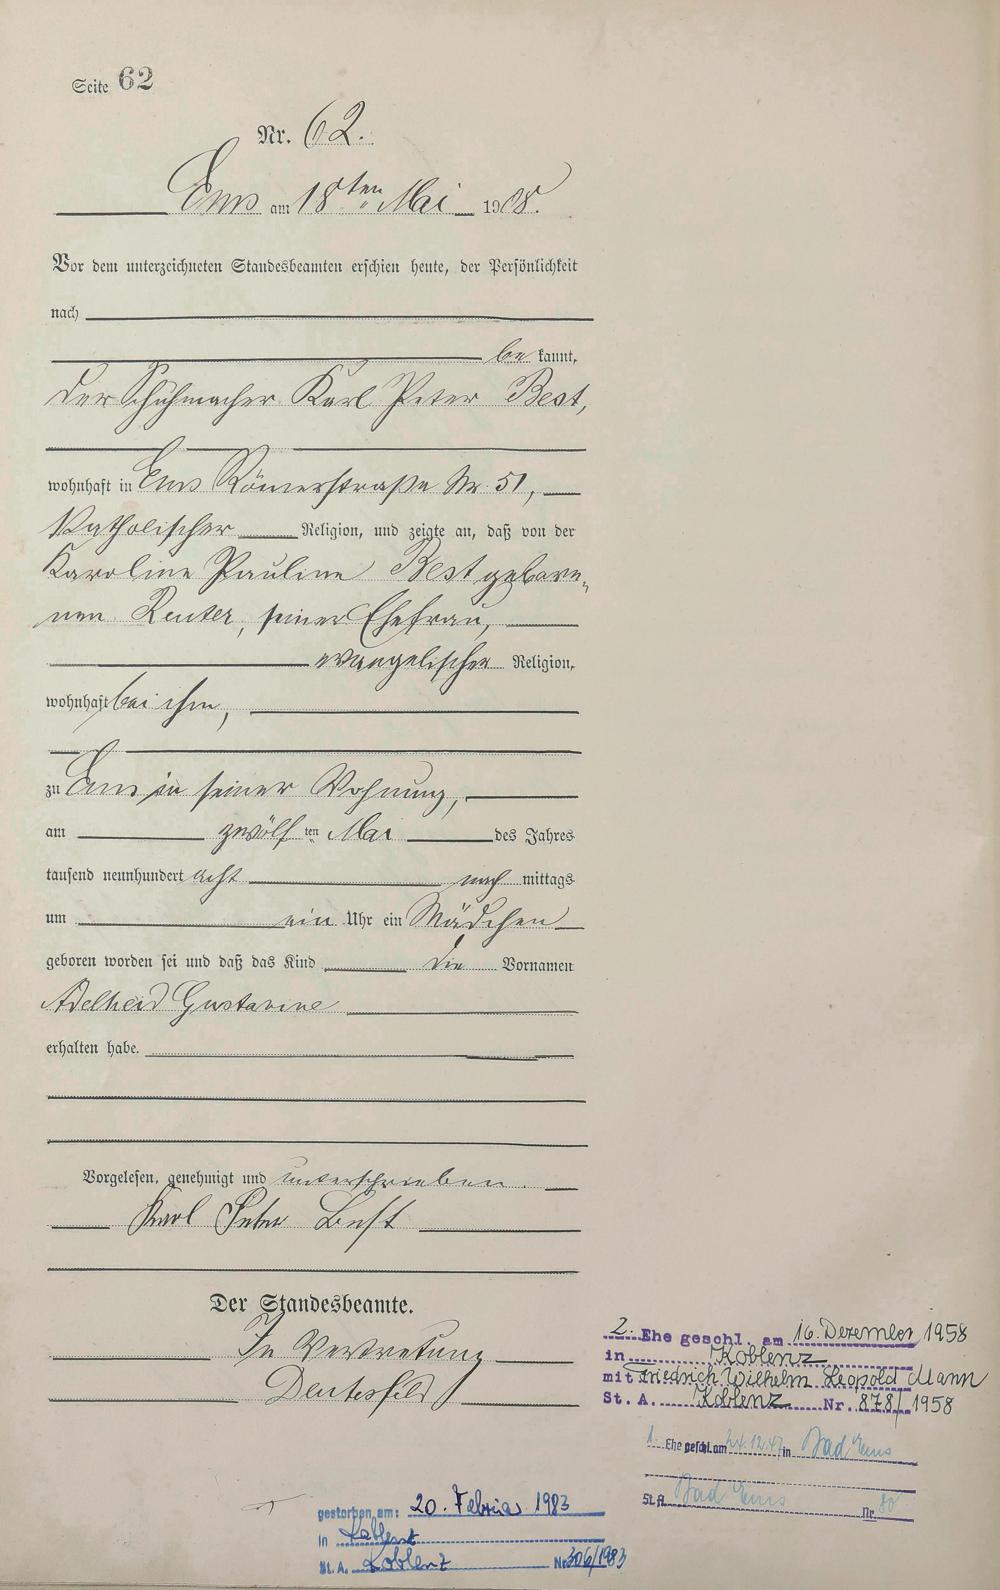 Seite 62
Nr. 62.
Ems am 18ten Mai 1908.
Vor dem unterzeichneten Standesbeamten erschien heute, der Persönlichkeit
nach
be kannt,
der Schuhmacher Karl Peter Best,
wohnhaft in Ems Römerstraße Nr. 51,
katholischer Religion, und zeigte an, daß von der
Karoline Pauline Best gebore-
nen Reuter, seiner Ehefrau,
evangelischer Religion,
wohnhaft bei ihm,
zu Ems in seiner Wohnung,
am zwölf ten Mai des Jahres
tausend neunhundert acht nach mittags
um ein Uhr ein Mädchen
geboren worden sei und daß das Kind die Vornamen
Adelheid Gustavine
erhalten habe.
Vorgelesen, genehmigt und unterschrieben.
Karl Peter Best
Der Standesbeamte.
In Vertretung
2. Ehe geschl. am 16. Dezember 1958
in Koblenz
mit Friedrich Wilhelm Leopold Mann
St. A. Koblenz Nr. 878/1958
1. Ehe geschl. am 24.12.47 in Bad Ems
St. A. Bad Ems Nr. 80
gestorben am: 20. Februar 1983
in Koblenz
St. A. Koblenz Nr. 306/1983